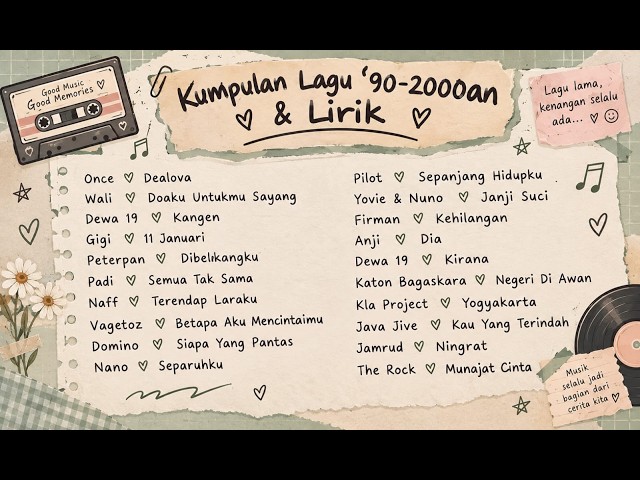 Good Music
Good Memories
Kumpulan Lagu '90-2000an
& Lirik
Lagu lama,
kenangan selalu
ada...
Once ♡ Dealova
Wali ♡ Doaku Untukmu Sayang
Dewa 19 ♡ Kangen
Gigi ♡ 11 Januari
Peterpan ♡ Dibelikangku
Padi ♡ Semua Tak Sama
Naff ♡ Terendap Laraku
Vagetoz ♡ Betapa Aku Mencintaimu
Domino ♡ Siapa Yang Pantas
Nano ♡ Separuhku
Pilot ♡ Sepanjang Hidupku
Yovie & Nuno ♡ Janji Suci
Firman ♡ Kehilangan
Anji ♡ Dia
Dewa 19 ♡ Kirana
Katon Bagaskara ♡ Negeri Di Awan
Kla Project ♡ Yogyakarta
Java Jive ♡ Kau Yang Terindah
Jamrud ♡ Ningrat
The Rock ♡ Munajat Cinta
Musik
selalu jadi
bagian dari
cerita kita ♡